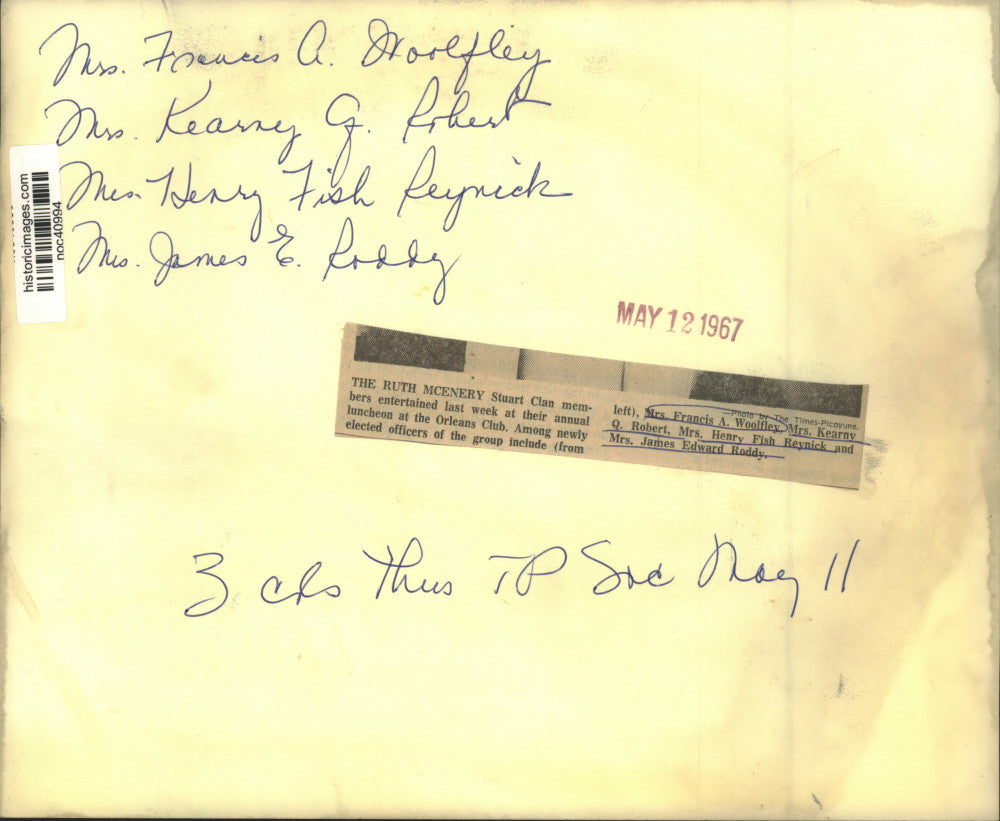 Mrs. Francis A. Woolfley
Mrs. Kearney Q. Robert
Mrs. Henry Fish Reynick
Mrs. James E. Roddy
historicimages.com
noc40994
MAY 12 1967
THE RUTH MCENERY Stuart Clan mem-
bers entertained last week at their annual
luncheon at the Orleans Club. Among newly
elected officers of the group include (from
—Photo by The Times-Picayune.
left), Mrs. Francis A. Woolfley, Mrs. Kearny
Q. Robert, Mrs. Henry Fish Reynick and
Mrs. James Edward Roddy.
3 cols Thus TP Soc May 11